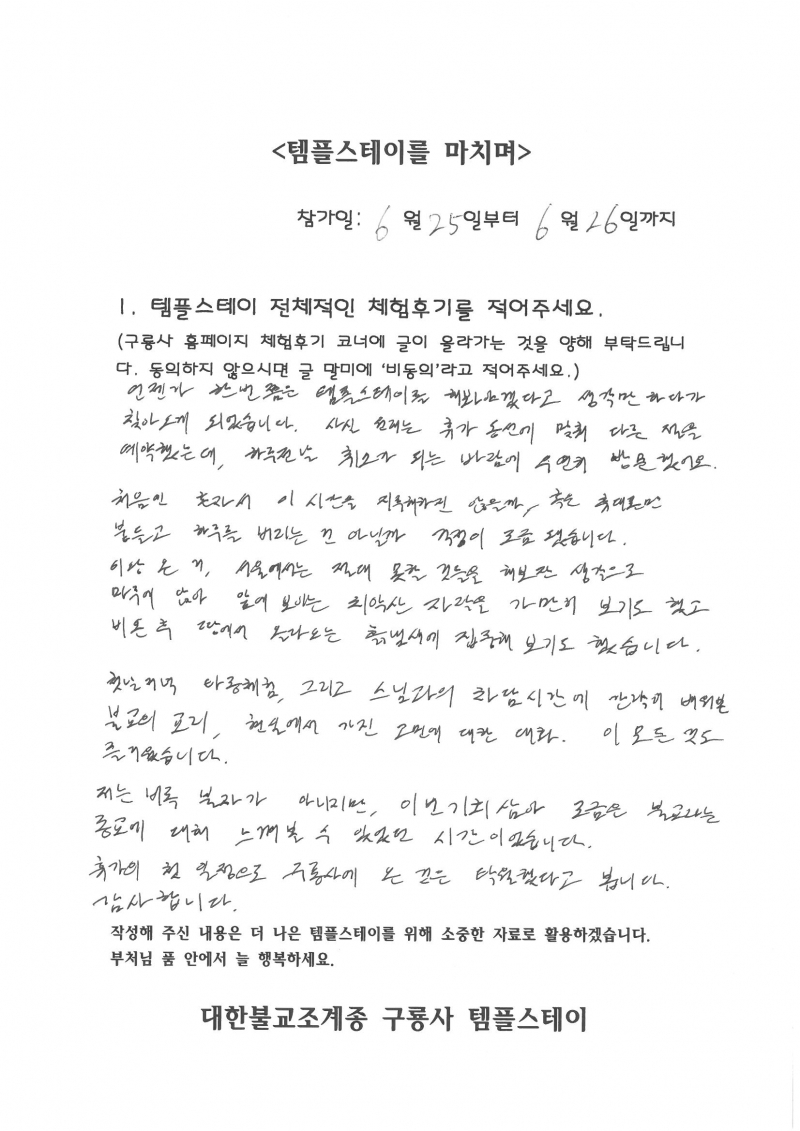 <템플스테이를 마치며>
참가일: 6 월 25일부터 6 월 26일까지
1. 템플스테이 전체적인 체험후기를 적어주세요.
(구룡사 홈페이지 체험후기 코너에 글이 올라가는 것을 양해 부탁드립니
다. 동의하지 않으시면 글 말미에 '비동의'라고 적어주세요.)
언젠가 한번쯤은 템플스테이를 해봐야겠다고 생각만 하다가
찾아오게 되었습니다. 사실 원래는 휴가 동선에 맞춰 다른 절을
예약했는데, 하루전날 취소가 되는 바람에 우연히 방문했어요.
처음인 혼자서 이 시간을 지루해하진 않을까, 혹은 휴대폰만
붙들고 하루를 버리는 건 아닐까 걱정이 조금 됐습니다.
이왕 온 거, 서울에서는 절대 못할 것들을 해보잔 생각으로
마루에 앉아 앞에 보이는 치악산 자락을 가만히 보기도 했고
비온 후 땅에서 올라오는 흙냄새에 집중해 보기도 했습니다.
첫날저녁 타종체험, 그리고 스님과의 차담시간에 간략히 배워본
불교의 교리, 현실에서 가진 고민에 대한 대화. 이 모든 것도
즐거웠습니다.
저는 비록 불자가 아니지만, 이번기회삼아 조금은 불교라는
종교에 대해 느껴볼 수 있었던 시간이었습니다.
휴가의 첫 일정으로 구룡사에 온 것은 탁월했다고 봅니다.
감사합니다.
작성해 주신 내용은 더 나은 템플스테이를 위해 소중한 자료로 활용하겠습니다.
부처님 품 안에서 늘 행복하세요.
대한불교조계종 구룡사 템플스테이